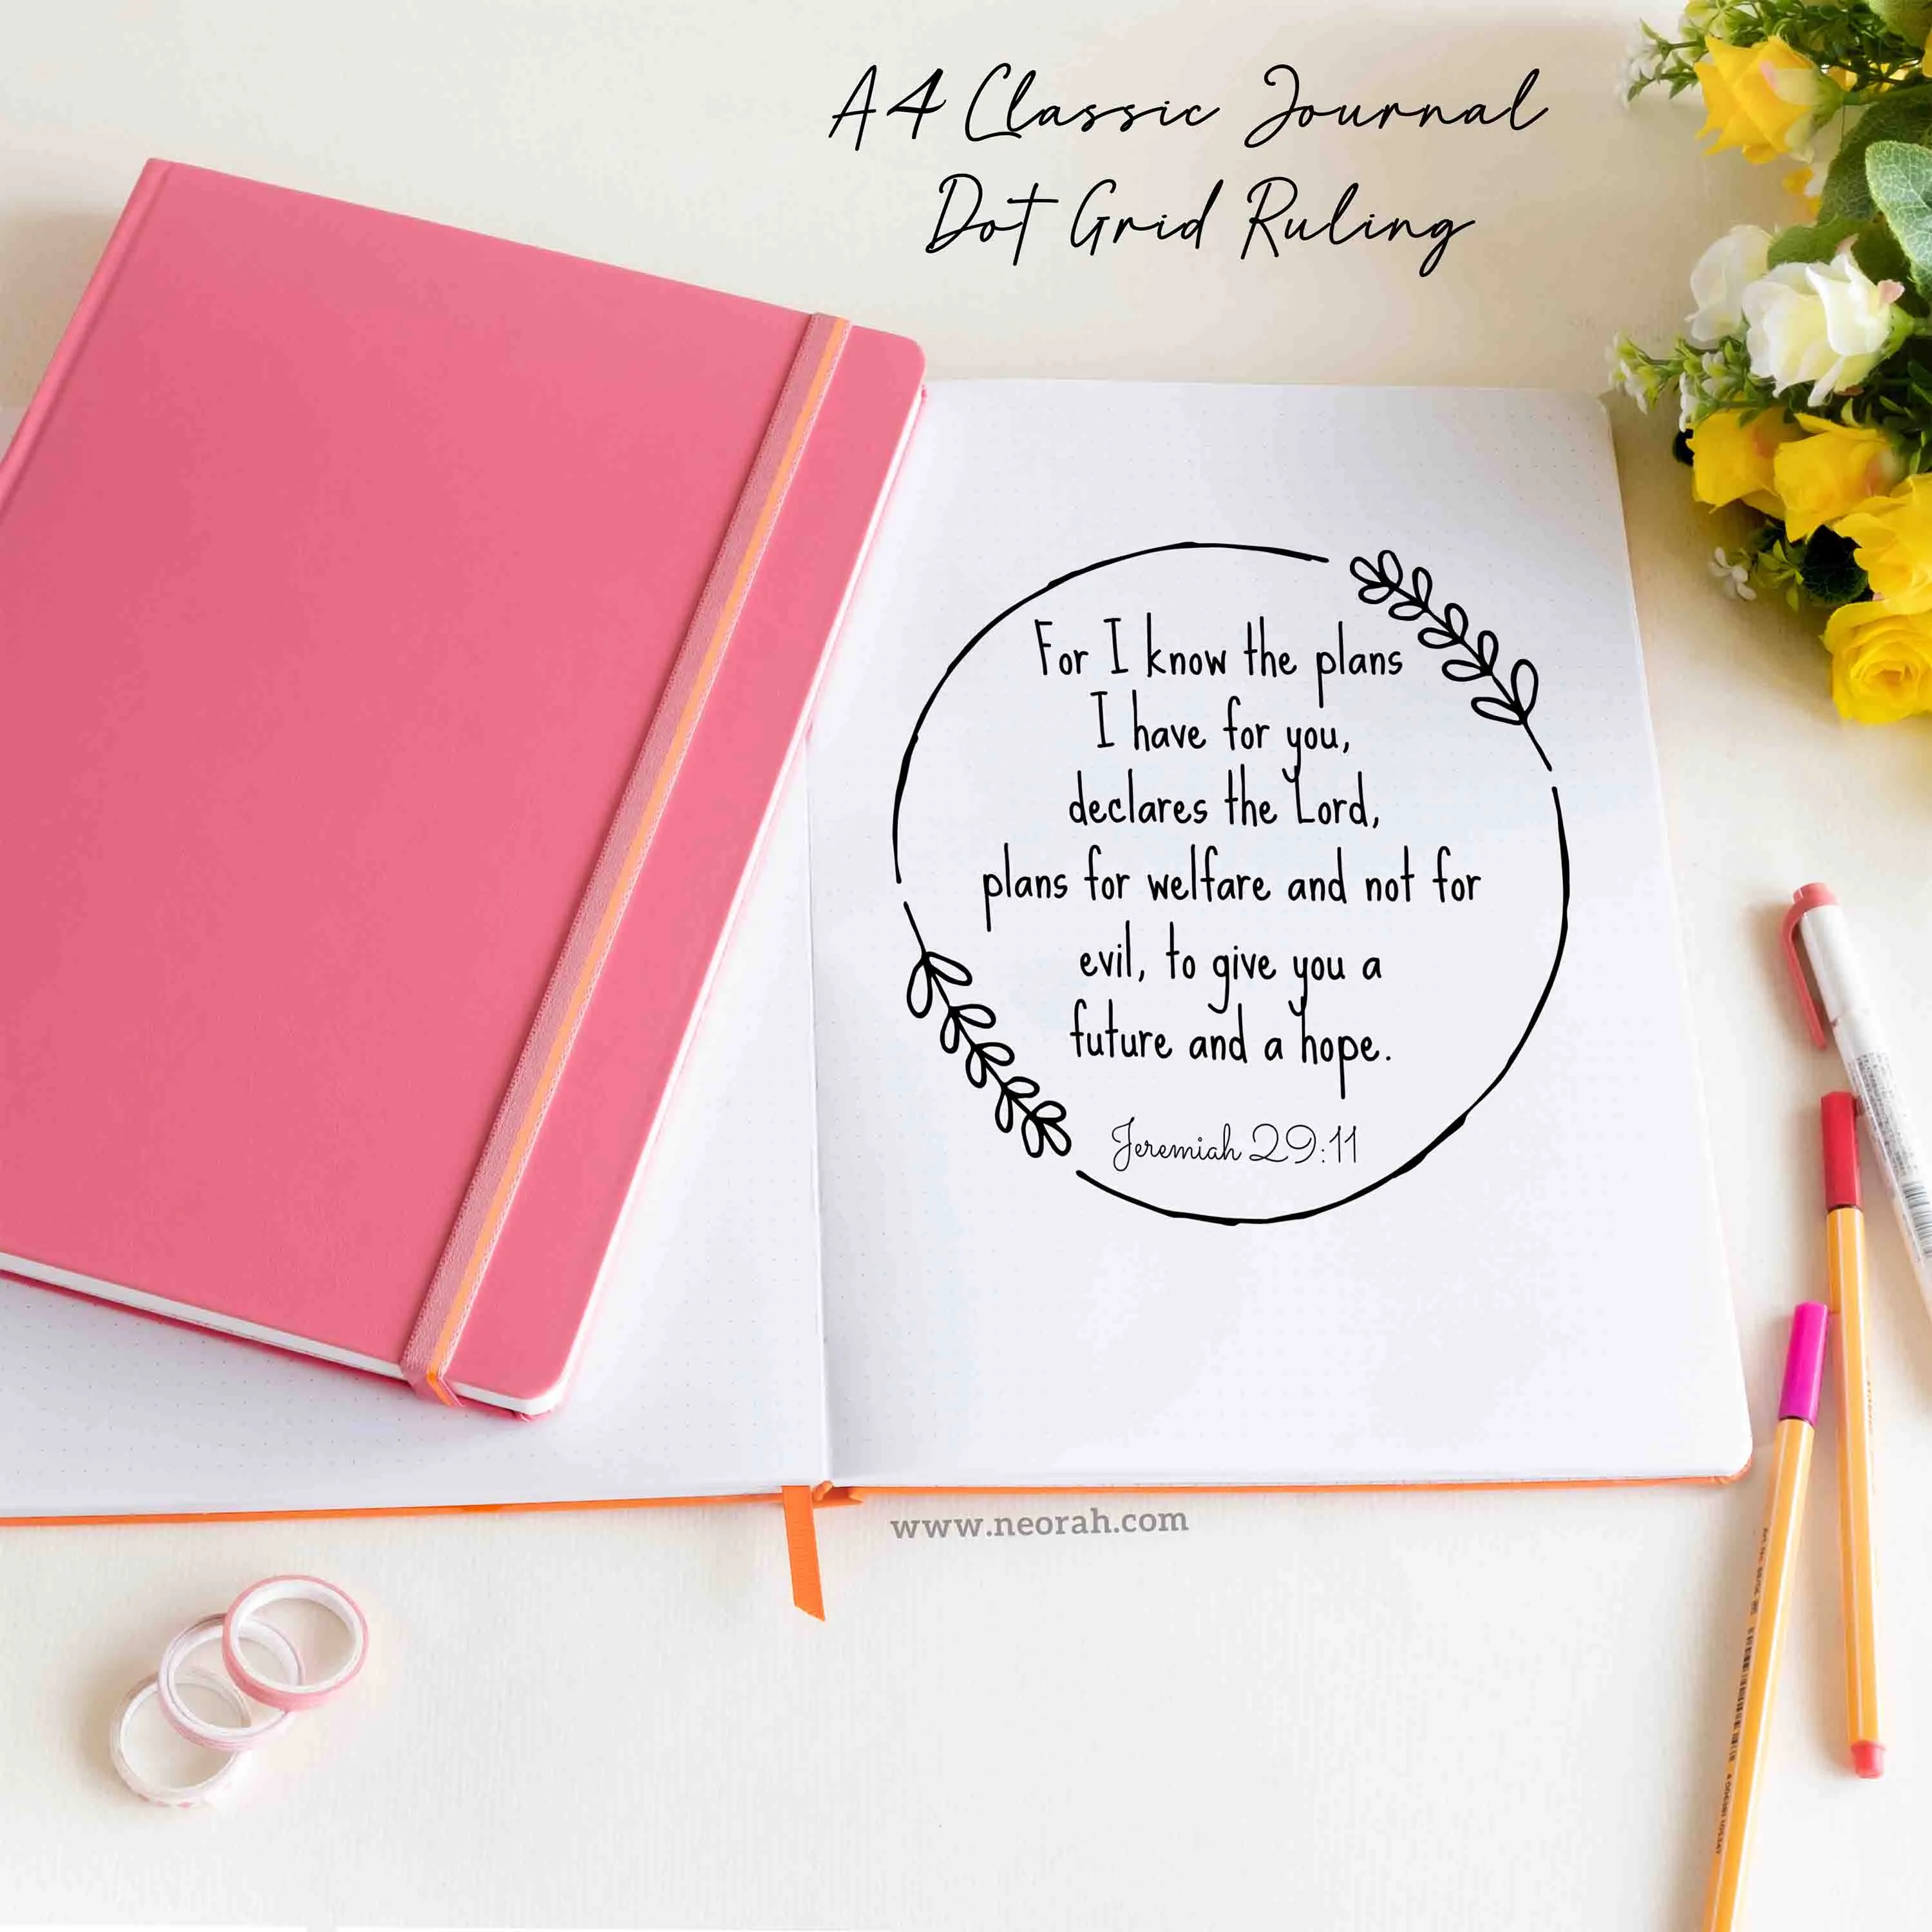 A4 Classic Journal
Dot Grid Ruling
For I know the plans
I have for you,
declares the Lord,
plans for welfare and not for
evil, to give you a
future and a hope.
Jeremiah 29:11
www.neorah.com